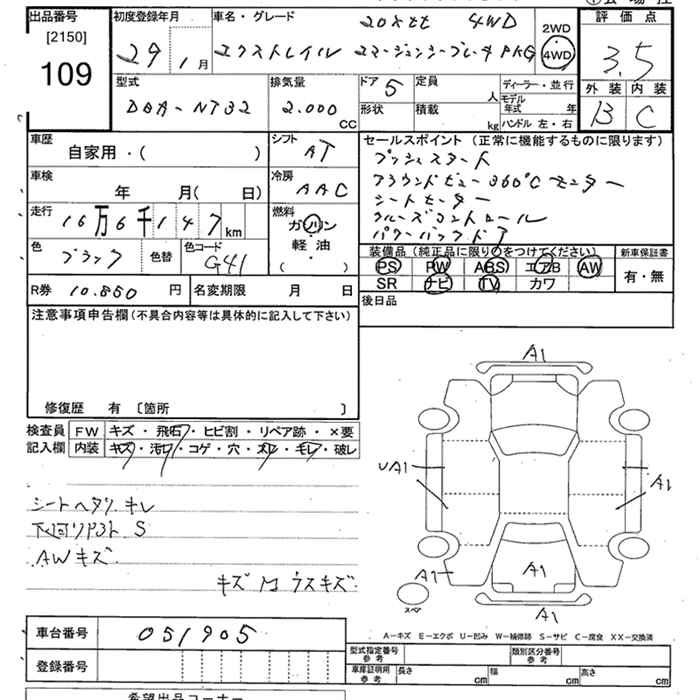 出品番号
[2150]
109
初度登録年月
29年 1月
車名・グレード
20Xtt 4WD
エクストレイル エマージェンシーブレーキPKG
2WD
4WD
評価点
3.5
外装 内装
B C
型式
DBA-NT32
排気量
2.000
CC
ドア 5
定員
人
形状
積載
kg
ディーラー・並行
モデル年式 年
ハンドル 左・右
車歴
自家用・( )
シフト
AT
車検
年 月( 日)
冷房
AAC
走行
16万6千147km
燃料
ガソリン
・
軽油
・
( )
色
ブラック
色替
色コード
G41
R券 10.850 円
名変期限 月 日
セールスポイント(正常に機能するものに限ります)
プッシュスタート
アラウンドビュー360℃モニター
シートヒーター
クルーズコントロール
パワーバックドア
装備品(純正品に限り○をつけてください)
PS PW ABS エアB AW
SR ナビ TV カワ
新車保証書
有・無
後日品
注意事項申告欄(不具合内容等は具体的に記入して下さい)
修復歴 有 〔箇所 〕
検査員記入欄
FW キズ・飛石・ヒビ割・リペア跡・×要
内装 キズ・汚れ・コゲ・穴・スレ・モレ・破レ
シートヘタリ.キレ
下廻リ S
AWキズ
キズ M ウスキズ
A1
UA1
A1
A1
A1
A1
スペア
A-キズ E-エクボ U-凹み W-補修跡 S-サビ C-腐食 XX-交換済
車台番号
051905
登録番号
型式指定番号
参考
類別区分番号
参考
車庫証明用
参考
長さ cm
幅 cm
高さ cm
希望出品コーナー